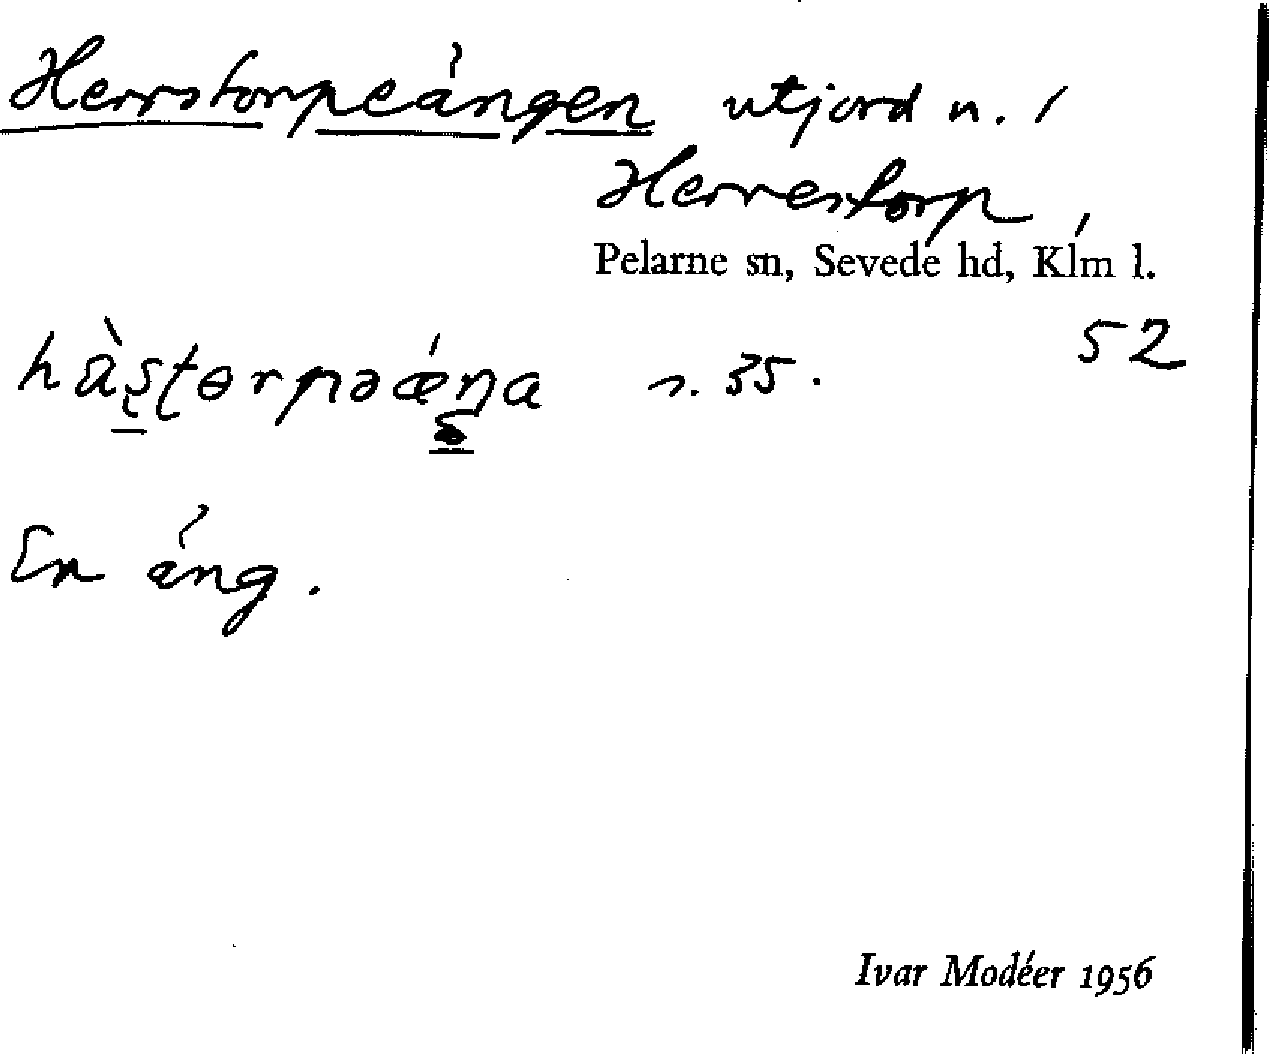 Herrstorpeängen utjord u. /
Herrestorp,
Pelarne sn, Sevede hd, Klm l.
52
s. 35.
En äng.
Ivar Modéer 1956